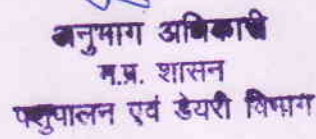 अनुभाग अधिकारी
म.प्र. शासन
पशुपालन एवं डेयरी विभाग